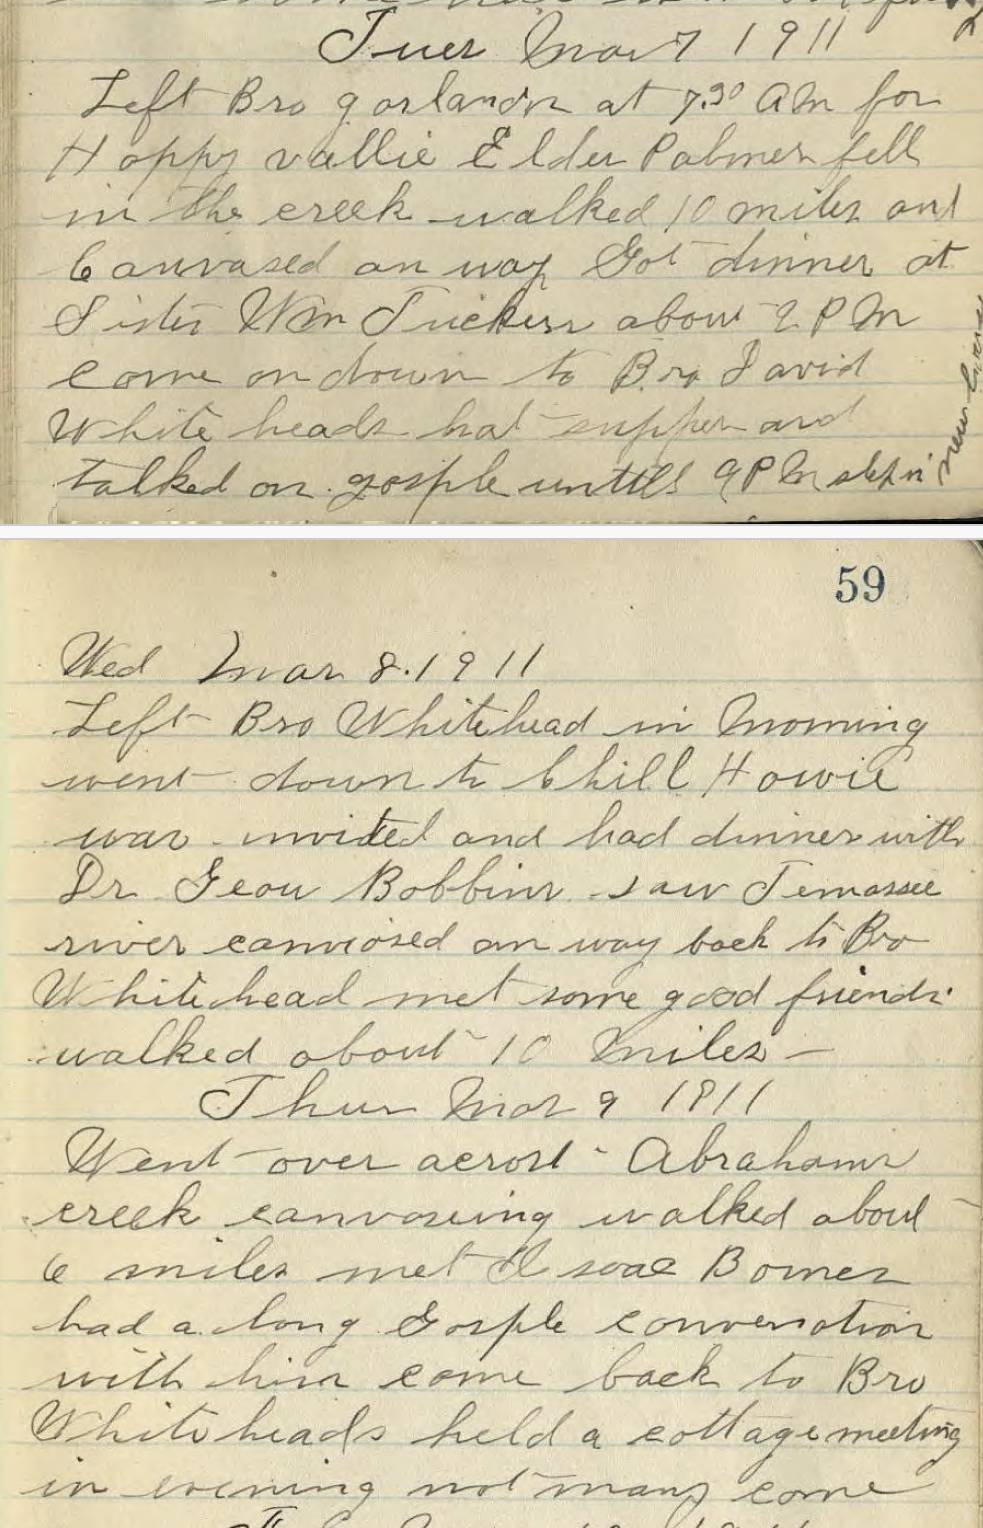 Tues Mar 7 1911
Left Bro garlandn at 7.30 AM for
Happy vallie Elder Palmer fell
in the creek walked 10 miles and
Canvased on way Got dinner at
Sister Wm Tuckers about 2 P M
come on down to Bro David
White heads hat supper and
talked on gosple untill 9 P M slep in
new
59
Wed Mar 8.1911
Left Bro Whitehead in Morning
went down to Chill Howie
was invited and had dinner with
Dr Bobbins saw Tennassee
river canvased on way back to Bro
Whitehead met some good friends
walked about 10 Miles —
Thur Mar 9 1911
Went over acrost Abrahams
creek canvaseing walked about
6 miles met Isaac Bomer
had a long Gosple conversation
with him come back to Bro
Whiteheads held a cottage meeting
in evening not many come